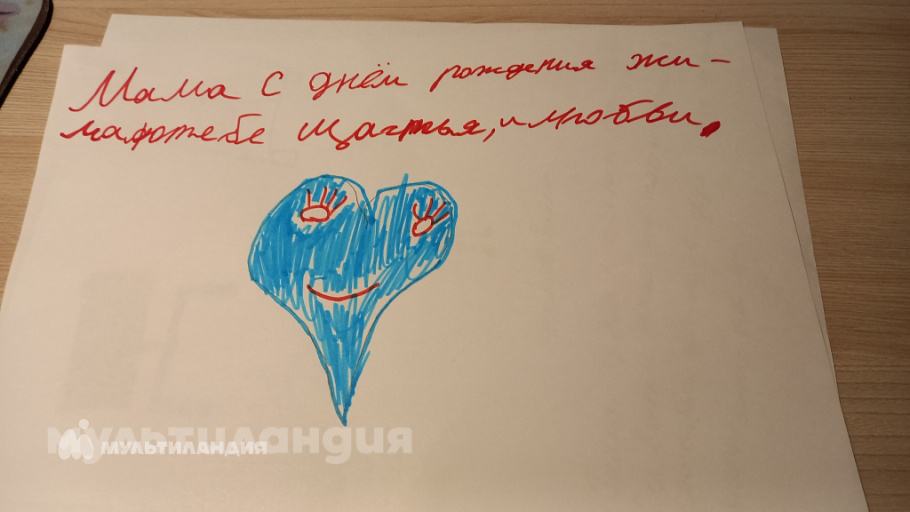 Мама с днём рождения жи-
лаютебе щастья, и любви.
мультиландия
МУЛЬТИЛАНДИЯ